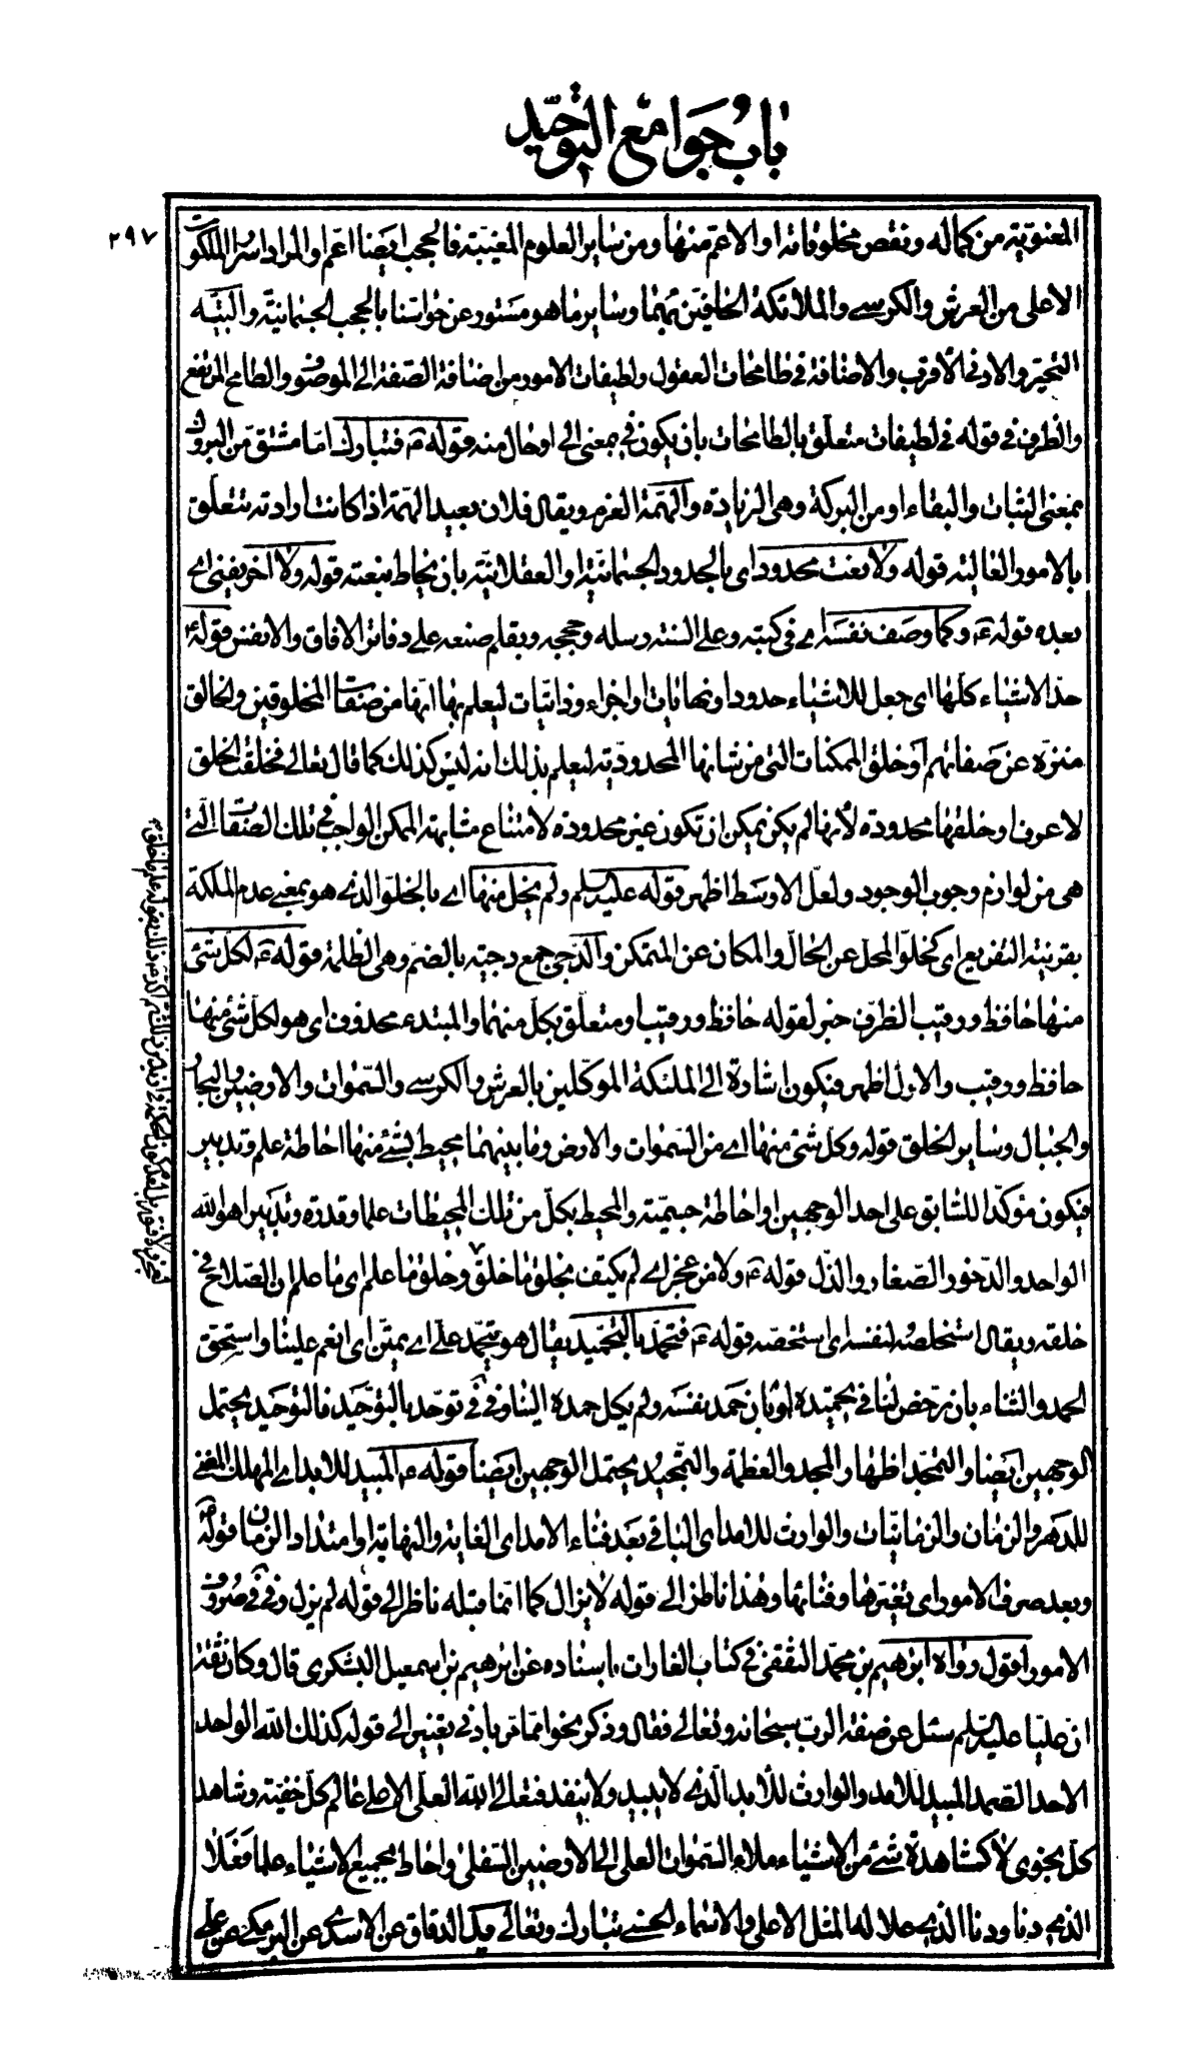 باب جوامع التوحيد
٢٩٧
المعنوية من كماله ونقص مخلوقاته او الاعم منها ومن ساير العلوم المغيبة فالحجب ايضا اعم او المراد اسرار الملكوت
الاعلى من العرش والكرسي والملائكة الحافين بهما وساير ما هو مستور عن حواسنا بالحجب الجسمانية والتيه
التحير والادنى الاقرب والاضافة في طامحات العقول ولطيفات الامور من اضافة الصفة الى الموصوف والطامح المرتفع
والظرف في قوله في لطيفات متعلق بالطامحات بان يكون في بمعنى الى او حال منه قوله ع فتبارك اما مشتق من البروك
بمعنى الثبات والبقاء او من البركة وهي الزيادة والهمة العزم ويقال فلان بعيد الهمة اذا كانت ارادته تتعلق
بالامور العالية قوله ولا نعت محدود اي بالحدود الجسمانية او العقلانية بان يحاط بنعته قوله ولا آخر يفنى اي
بعده قوله ع وكما وصف نفسه اي في كتبه وعلى السنة رسله وحججه وبقلم صنعه على دفاتر الافاق والانفس قوله ع
حد الاشياء كلها اي جعل للاشياء حدودا ونهايات او اجزاء وذاتيات ليعلم بها انها من صفات المخلوقين والخالق
منزه عن صفاتهم او خلق الممكنات التي من شانها المحدودية ليعلم بذلك انه ليس كذلك كما قال تعالى فخلقت الخلق
لاعرف او خلقها محدودة لأنها لم يكن يمكن ان تكون غير محدودة لامتناع مشابهة الممكن الواجب في تلك الصفات التي
هي من لوازم وجوب الوجود ولعل الاوسط اظهر قوله عليه السلم ولم يخل منها اي بالخلو الذي هو بمعنى عدم الملكة
بقرينة التفريع اي كخلو المحل عن الحال والمكان عن المتمكن والدجى جمع دجية بالضم وهي الظلمة قوله ع لكل شئ
منها حافظ ورقيب الظرف خبر لقوله حافظ ورقيب او متعلق بكل منهما والمبتدء محذوف اي هو لكل شئ منها
حافظ ورقيب والاول اظهر فيكون اشارة الى الملئكة الموكلين بالعرش والكرسي والسموات والارضين والبحار
والجبال وساير الخلق قوله وكل شئ منها اي من السموات والارض وما بينهما محيط بشئ منها احاطة علم وتدبير
فيكون مؤكدا للسابق على احد الوجهين او احاطة جسمية والمحيط بكل من تلك المحيطات علما وقدرة وتدبيرا هو الله
الواحد والدخور الصغار والذل قوله ع ولا من عجز اي لم يكتف بخلق ما خلق وخلق ما علم اي ما علم ان الصلاح في
خلقه ويقال استخلصه لنفسه اي استخصه قوله ع فتحمد بالتحميد يقال هو يتحمد علي اي يمتن اي انعم علينا واستحق
الحمد والثناء بان رخص لنا في تحميده او بان حمد نفسه ولم يكل حمده الينا وفي في توحد بالتوحيد فالتوحيد يحتمل
الوجهين ايضا والتمجد اظهار المجد والعظمة والتمجيد يحتمل الوجهين ايضا قوله ع المبيد للابد اي المهلك المفني
للدهر والزمان والزمانيات والوارث للامد اي الباقي بعد فناء الامد اي الغاية والنهاية او امتداد الزمان قوله ع
وبعد صرف الامور اي تغيرها وفنائها وهذا ناظر الى قوله لا يزال كما انما قبله ناظر الى قوله لم يزل وفي في صروف
الامور اقول رواه ابرهيم بن محمد الثقفي في كتاب الغارات باسناده عن ابرهيم بن اسمعيل اليشكري قال وكان ثقة
ان عليا عليه السلم سئل عن صفة الرب سبحانه وتعالى فقال وذكر نحوا مما مر بادنى تغيير الى قوله كذلك الله الواحد
الاحد الصمد المبيد للامد والوارث للأبد الذي لا يبيد ولا ينفد فتعالى الله العلي الاعلى عالم كل خفية وشاهد
كل نجوى لا كمشاهدة شئ من الاشياء ملاء السموات العلى الى الارضين السفلى واحاط بجميع الاشياء علما فعلا
الذي دنا ودنا الذي علا له المثل الاعلى والاسماء الحسنى تبارك وتعالى يد الدقاق عن الاسدي عن البرمكي عن علي